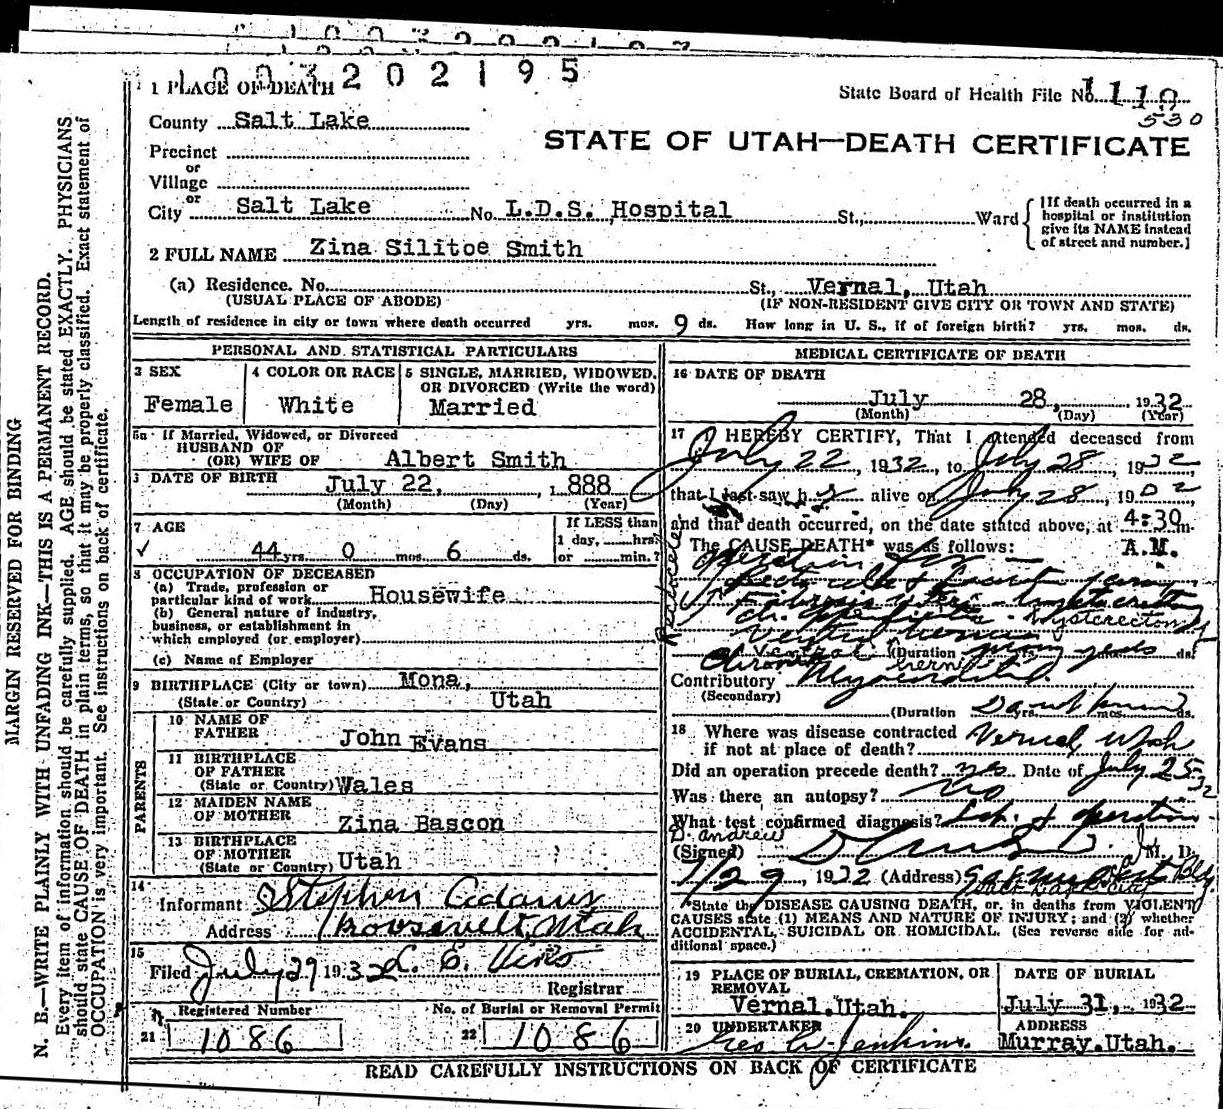 1003202195
1 PLACE OF DEATH
State Board of Health File No. 1110
530
County Salt Lake
STATE OF UTAH—DEATH CERTIFICATE
Precinct
or
Village
or
City Salt Lake No. L.D.S. Hospital St., Ward
[If death occurred in a
hospital or institution
give its NAME instead
of street and number.]
2 FULL NAME Zina Silitoe Smith
(a) Residence. No. St., Vernal, Utah
(USUAL PLACE OF ABODE) (IF NON-RESIDENT GIVE CITY OR TOWN AND STATE)
Length of residence in city or town where death occurred yrs. mos. 9 ds. How long in U. S., if of foreign birth? yrs. mos. ds.
PERSONAL AND STATISTICAL PARTICULARS
3 SEX
Female
4 COLOR OR RACE
White
5 SINGLE, MARRIED, WIDOWED,
OR DIVORCED (Write the word)
Married
5a If Married, Widowed, or Divorced
HUSBAND OF
(OR) WIFE OF Albert Smith
DATE OF BIRTH July 22, 1888
(Month) (Day) (Year)
7 AGE
44 yrs. 0 mos. 6 ds.
If LESS than
1 day, hrs.
or min.?
8 OCCUPATION OF DECEASED
(a) Trade, profession or
particular kind of work Housewife
(b) General nature of industry,
business, or establishment in
which employed (or employer)
(c) Name of Employer
9 BIRTHPLACE (City or town) Mona,
(State or Country) Utah
PARENTS
10 NAME OF
FATHER John Evans
11 BIRTHPLACE
OF FATHER
(State or Country) Wales
12 MAIDEN NAME
OF MOTHER Zina Bascon
13 BIRTHPLACE
OF MOTHER
(State or Country) Utah
14
Informant Stephen Adams
Address Roosevelt, Utah
15
Filed July 29 1932
Registrar
Registered Number
21 1086
No. of Burial or Removal Permit
22 1086
MEDICAL CERTIFICATE OF DEATH
16 DATE OF DEATH
July 28, 1932
(Month) (Day) (Year)
17 I HEREBY CERTIFY, That I attended deceased from
July 22, 1932, to July 28, 1932
that I last saw h alive on July 28, 19
and that death occurred, on the date stated above, at 4:30 m.
A.M.
The CAUSE DEATH* was as follows:
Hysterectomy
Ventral hernia
(Duration many yrs ds.
Chronic
Contributory Myocarditis
(Secondary)
(Duration yrs. mos. ds.
18 Where was disease contracted
if not at place of death? Vernal Utah
Did an operation precede death? yes Date of July 25 32
Was there an autopsy? No
What test confirmed diagnosis? operation
D. andrew
(Signed) M. D.
7/29, 1932 (Address)
*State the DISEASE CAUSING DEATH, or, in deaths from VIOLENT
CAUSES state (1) MEANS AND NATURE OF INJURY; and (2) whether
ACCIDENTAL, SUICIDAL OR HOMICIDAL. (See reverse side for ad-
ditional space.)
19 PLACE OF BURIAL, CREMATION, OR
REMOVAL
Vernal.Utah.
DATE OF BURIAL
July 31, 1932
20 UNDERTAKER
Geo W Jenkins.
ADDRESS
Murray.Utah.
READ CAREFULLY INSTRUCTIONS ON BACK OF CERTIFICATE
MARGIN RESERVED FOR BINDING
N. B.—WRITE PLAINLY WITH UNFADING INK—THIS IS A PERMANENT RECORD.
Every item of information should be carefully supplied. AGE should be stated EXACTLY. PHYSICIANS
should state CAUSE OF DEATH in plain terms, so that it may be properly classified. Exact statement of
OCCUPATION is very important. See instructions on back of certificate.